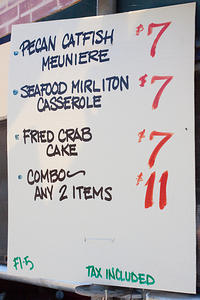 PECAN CATFISH $7
MEUNIERE
SEAFOOD MIRLITON $7
CASSEROLE
FRIED CRAB $7
CAKE
COMBO~ $11
ANY 2 ITEMS
F1-5 TAX INCLUDED